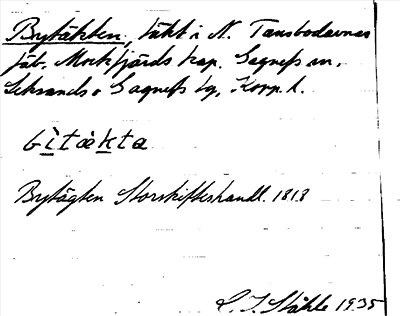 Brytäkten, täkt i N. Tansbodarnas
fäb. Mockfjärds kap. Gagnefs sn,
Leksands o Gagnefs tg, Kopp. l.
bìtäkta
Brytägten Storskifteshandl. 1818
C. I. Ståhle 1935